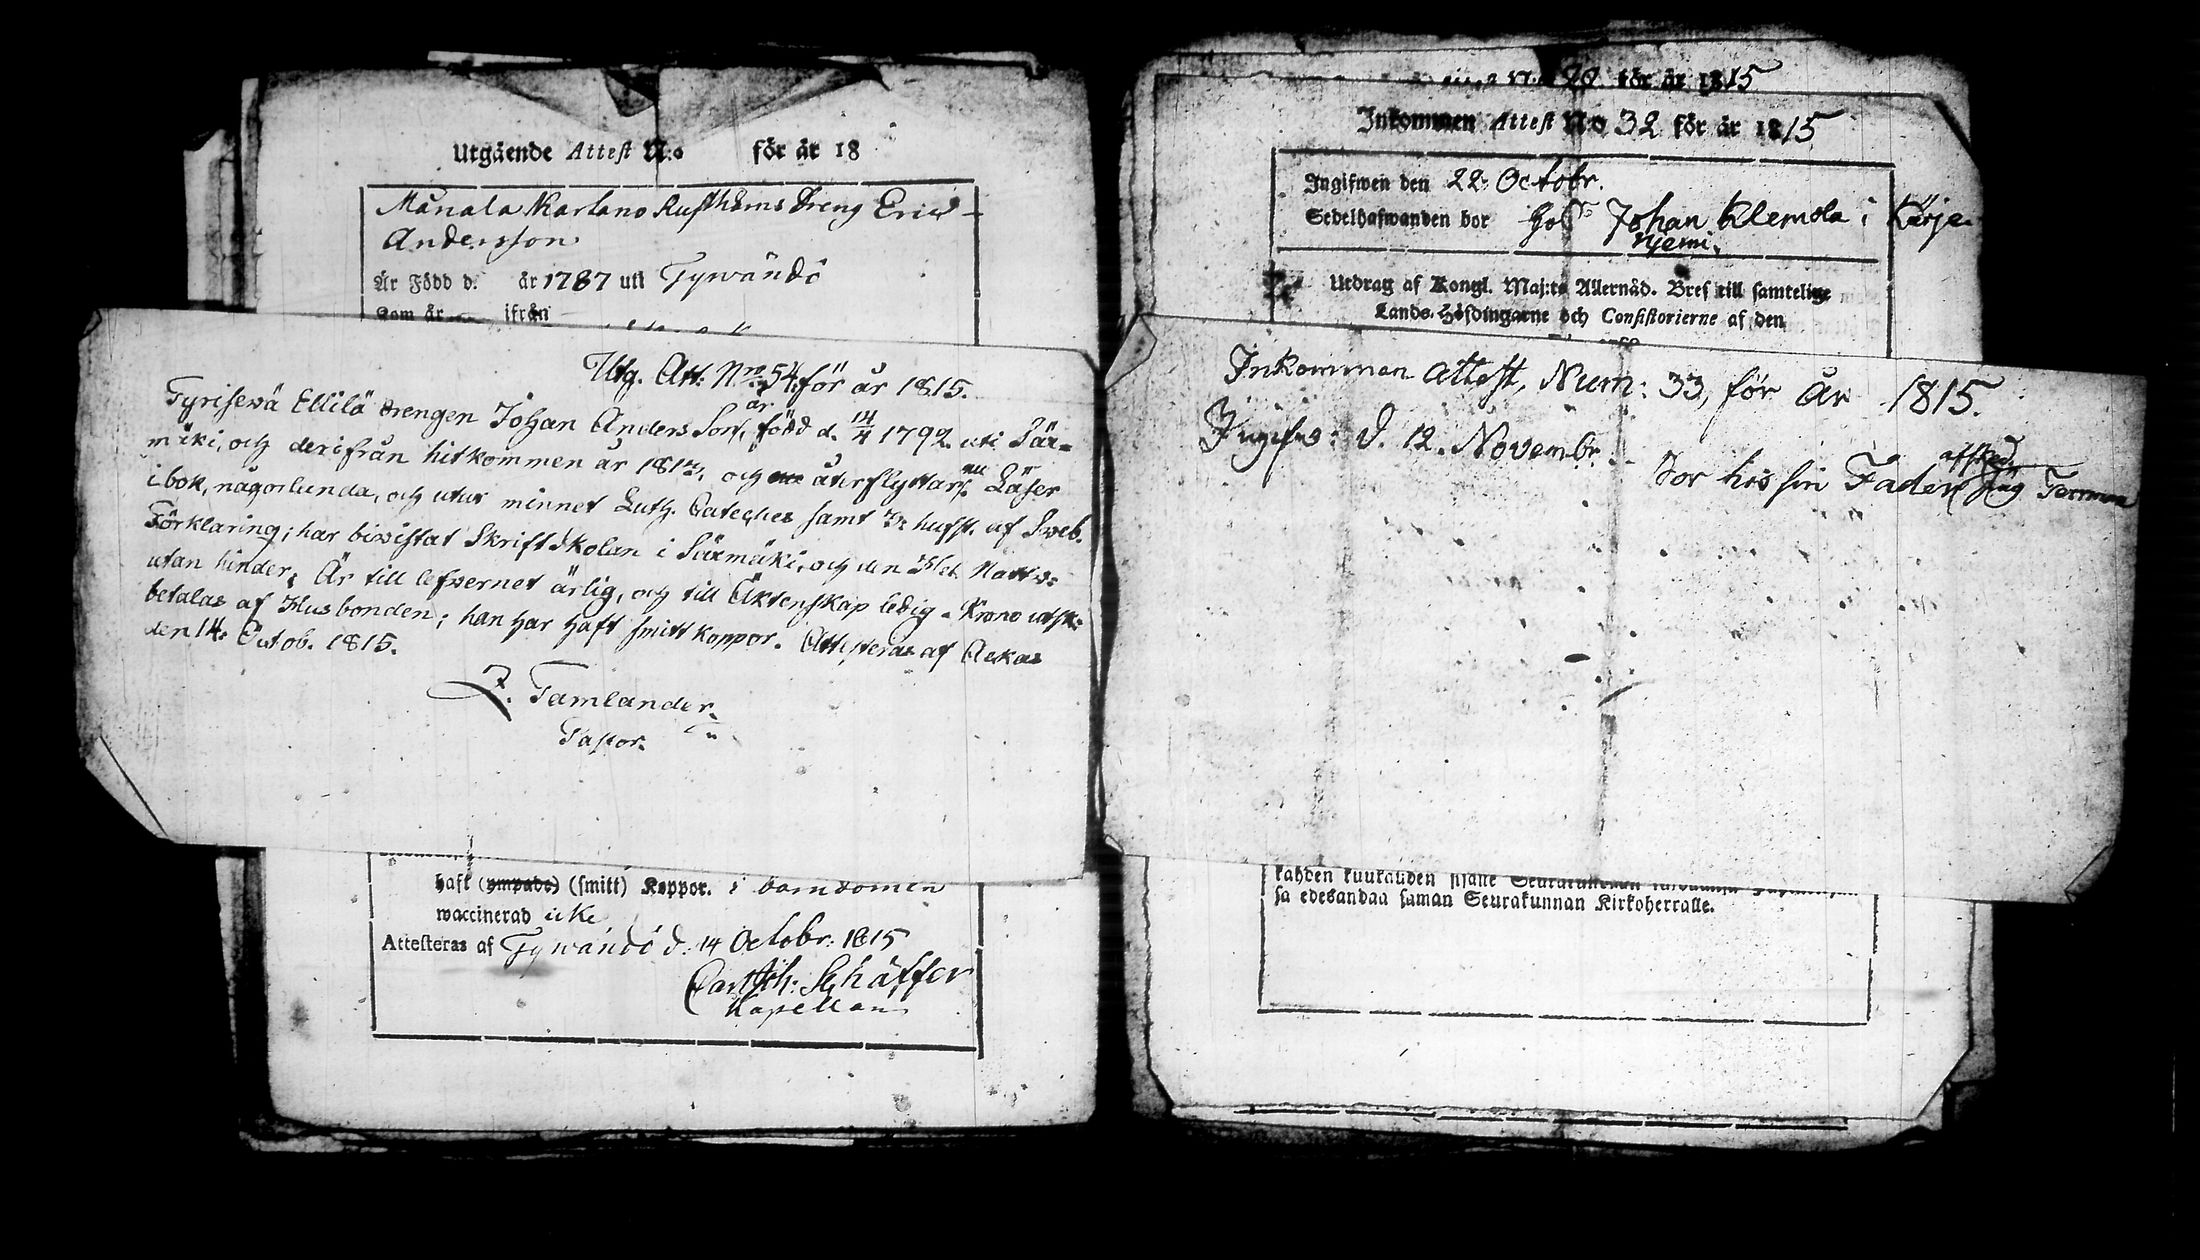 Utgående Attest N:o för år 18
Manala Karlano Rusthåms Dreng Eric
Andersson
Är Född d. år 1787 uti Tywändö
Kom år ifrån
Utg. Att: Nro 54 för år 1815.
Tyrisewä Ellilä drengen Johan Anders Son, är född d. 14/4 1792 uti Sär-
mäki, och derifrån hitkommen år 1812, och återflyttar nu. Läser
i bok, någorlunda, och utur minnet Luth. Cateches samt 3 hufst. af Sweb.
Förklaring; har biwistat Skriftskolan i Särmäki, och den H: Nattv:
utan hinder; Är till lefwernet ärlig, och till Äktenskap ledig. Krono utsk:
betalas af Husbonden; han har haft smittkoppor. Attesteras af Ackas
den 14. Octob. 1815.
Tamlander.
Pastor.
haft (ympade) (smitt) Koppor. i barndomen
waccinerad icke
Attesteras af Tywändö d. 14 Octobr: 1815
Carl Joh: Schäffer
Kapellan
20 för år 1815
Inkommen Attest No 32 för år 1815
Ingifwen den 22. Octobr.
Sedelhafwanden bor hos Johan Klemola i Kärje-
njemi.
Utdrag af Kongl. Maj:ts Allernåd. Bref till samtelige
Lands-Höfdingarne och Consistorierne af den
Inkommen attest, Num: 33, för år 1815.
Ingifws: d. 12. Novembr.
Bor hos sin Fader afsked.
kahden kuukauden sisälle
sa edesandaa saman Seurakunnan Kirkoherralle.